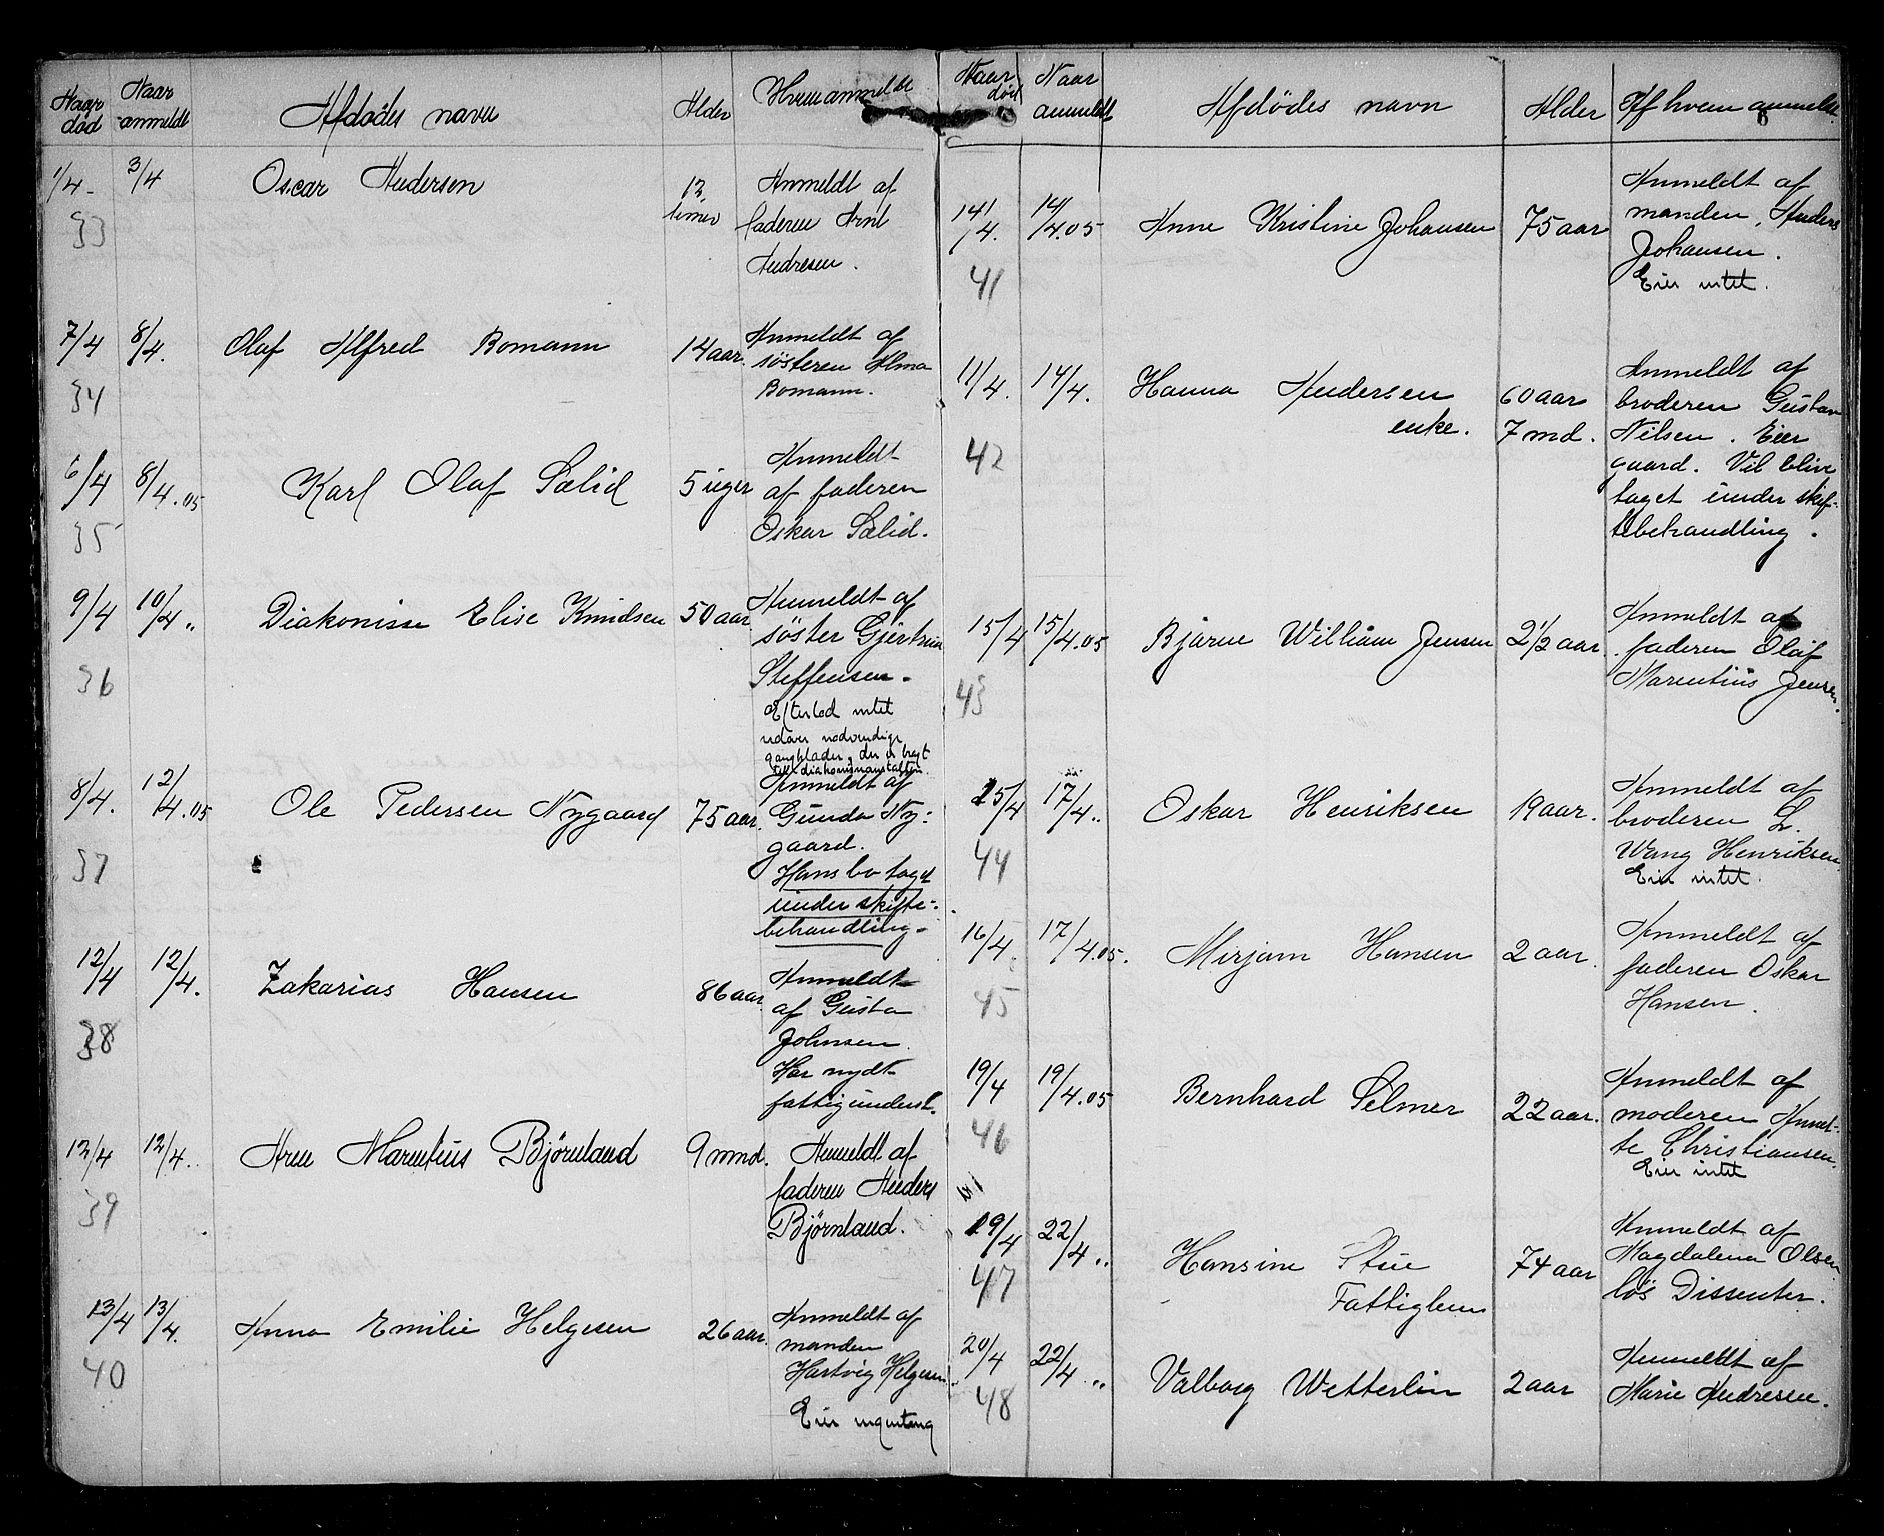 Naar død Naar anmeldt Afdødes navn Alder Hvem anmeldt
1/4 3/4 Oscar Andersen 12 timer Anmeldt af
33 faderen Arnt
Andresen.
7/4 8/4. Olaf Alfred Bomann 14 aar. Anmeldt af
34 søsteren Alma
Bomann.
6/4 8/4.05 Karl Olaf Sælid 5 uger Anmeldt
35 af faderen
Oskar Sælid.
9/4 10/4 " Diakonisse Elise Knudsen 50 aar Anmeldt af
36 søster Gjertrud
Steffensen.
Efterlod intet
udover nødvendige
gangklæder, der er bragt
till diakonisanstalten.
8/4. 12/4.05 Ole Pedersen Nygaard 75 aar. Anmeldt af
37 Gunda Ny-
gaard.
Hans bo taget
under skifte-
behandling.
12/4 12/4. Zakarias Hansen 86 aar Anmeldt
38 af Gusta
Johnsen.
Har nydt
fattigunderst.
12/4 12/4.. Arne Marentius Bjørnland 9 mnd. Anmeldt af
39 faderen Anders
Bjørnland.
13/4 13/4. Anna Emilie Helgesen 26 aar. Anmeldt af
40 manden
Hartvig Helgesen
Eier ingenting
Naar død Naar anmeldt Afdødes navn Alder Af hvem anmeldt
14/4. 14/4.05 Anne Kristine Johansen 75 aar Anmeldt af
41 manden, Anders
Johansen.
Eier intet.
11/4. 14/4. Hanna Andersen enke. 60 aar 7 md. Anmeldt af
42 broderen Gustav
Nilsen. Eier
gaard. Vil blive
taget under skif-
tebehandling.
15/4 15/4.05 Bjarne William Jensen 2 1/2 aar. Anmeldt af
43 faderen Olaf
Marentius Jensen.
15/4 17/4 " Oskar Henriksen 19 aar. Anmeldt af
44 broderen L.
Wang Henriksen
Eier intet.
16/4. 17/4.05. Mirjam Hansen 2 aar. Anmeldt af
45 faderen Oskar
Hansen.
19/4 19/4.05 Bernhard Selmer 22 aar. Anmeldt af
46 moderen Annet-
te Christiansen.
Eier intet
19/4 22/4 " Hansine Stue 74 aar Anmeldt af
47 Fattiglem Magdalena Olsen
løs Dissenter.
20/4 22/4 " Valborg Wetterlin 2 aar Anmeldt af
48 Marie Andresen.